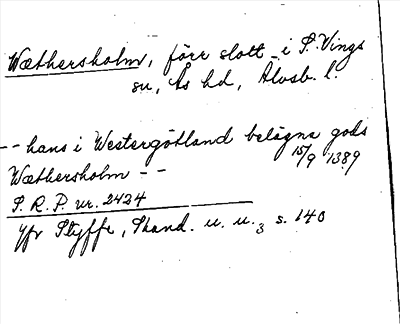 Wæthersholm, förr slott i S. Vings
su, Ås hd, Älvsb. l.
-- hans i Westergötland belägna gods
15/9 1389
Wæthersholm --
S. R. P. nr. 2424
Jfr Styffe, Skand. u. u.3 s. 140